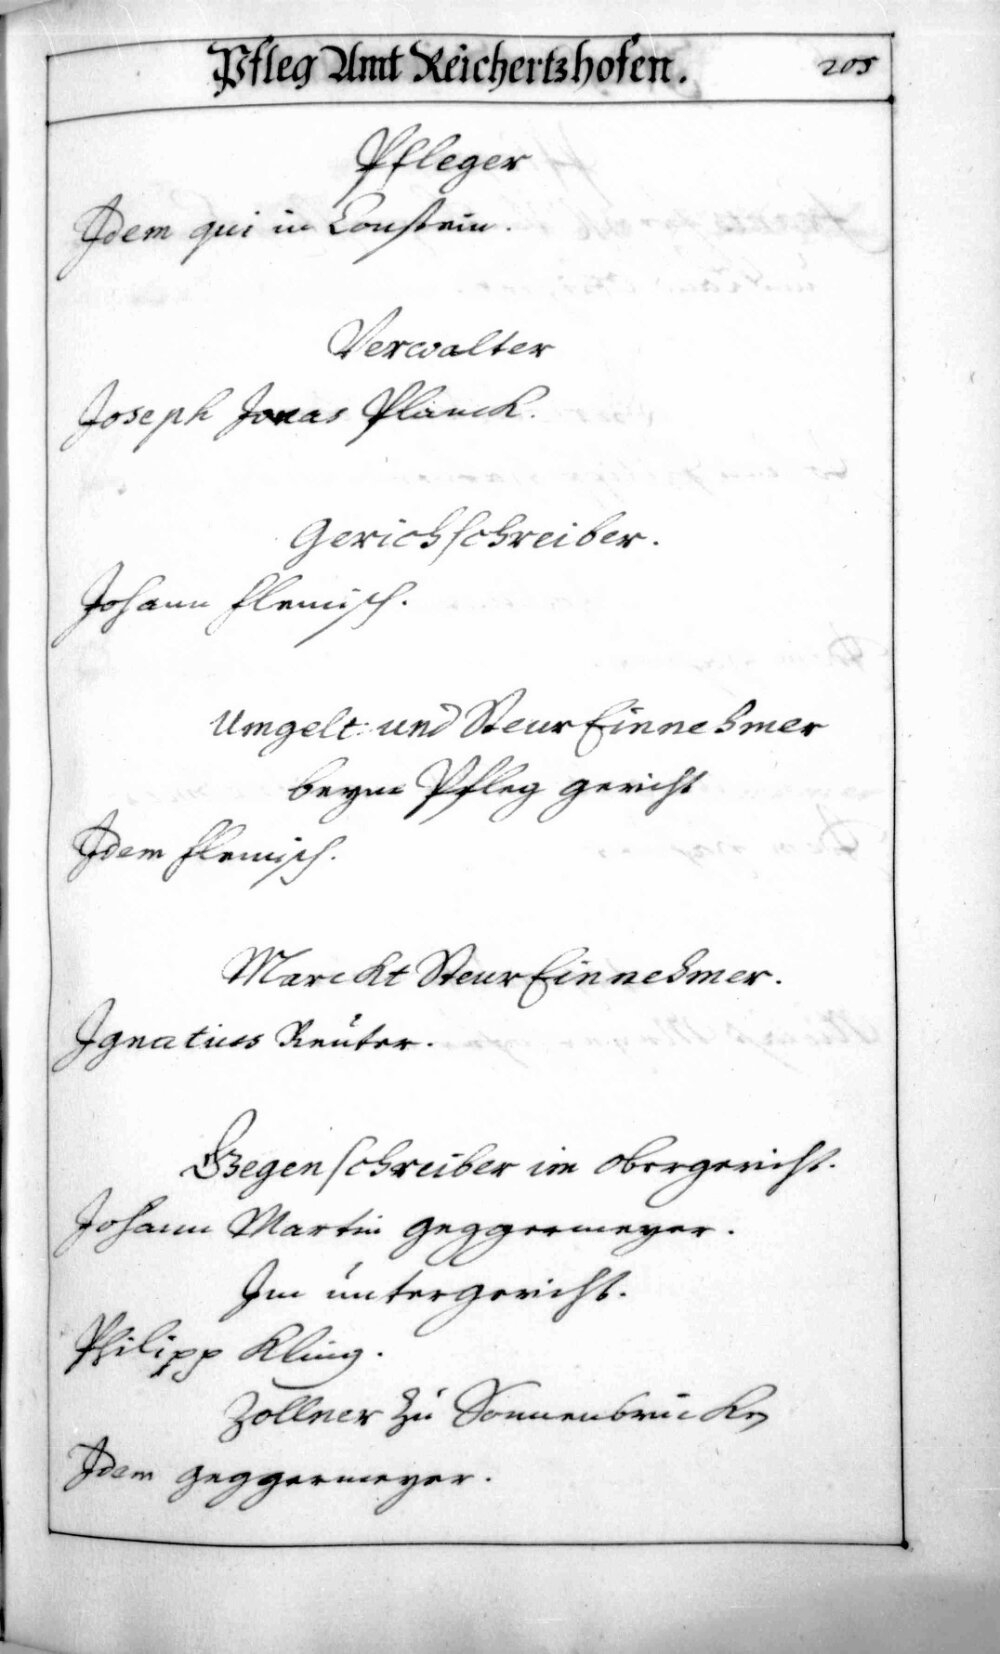 Pfleg Amt Reichertshofen. 205
Pfleger
Idem qui in Constein.
Verwalter
Joseph Jonas Planck.
Gerichschreiber.
Johann Flemisch.
Umgelt und Steur Einnehmer
beym Pfleg gericht
Idem Flemisch.
Marckt Steur Einnehmer.
Ignatius Reuter.
Gegenschreiber im obergericht.
Johann Martin Geggermeyer.
Im untergericht.
Philipp Kling.
Zollner zu Sonnenbrucken
Idem Geggermeyer.